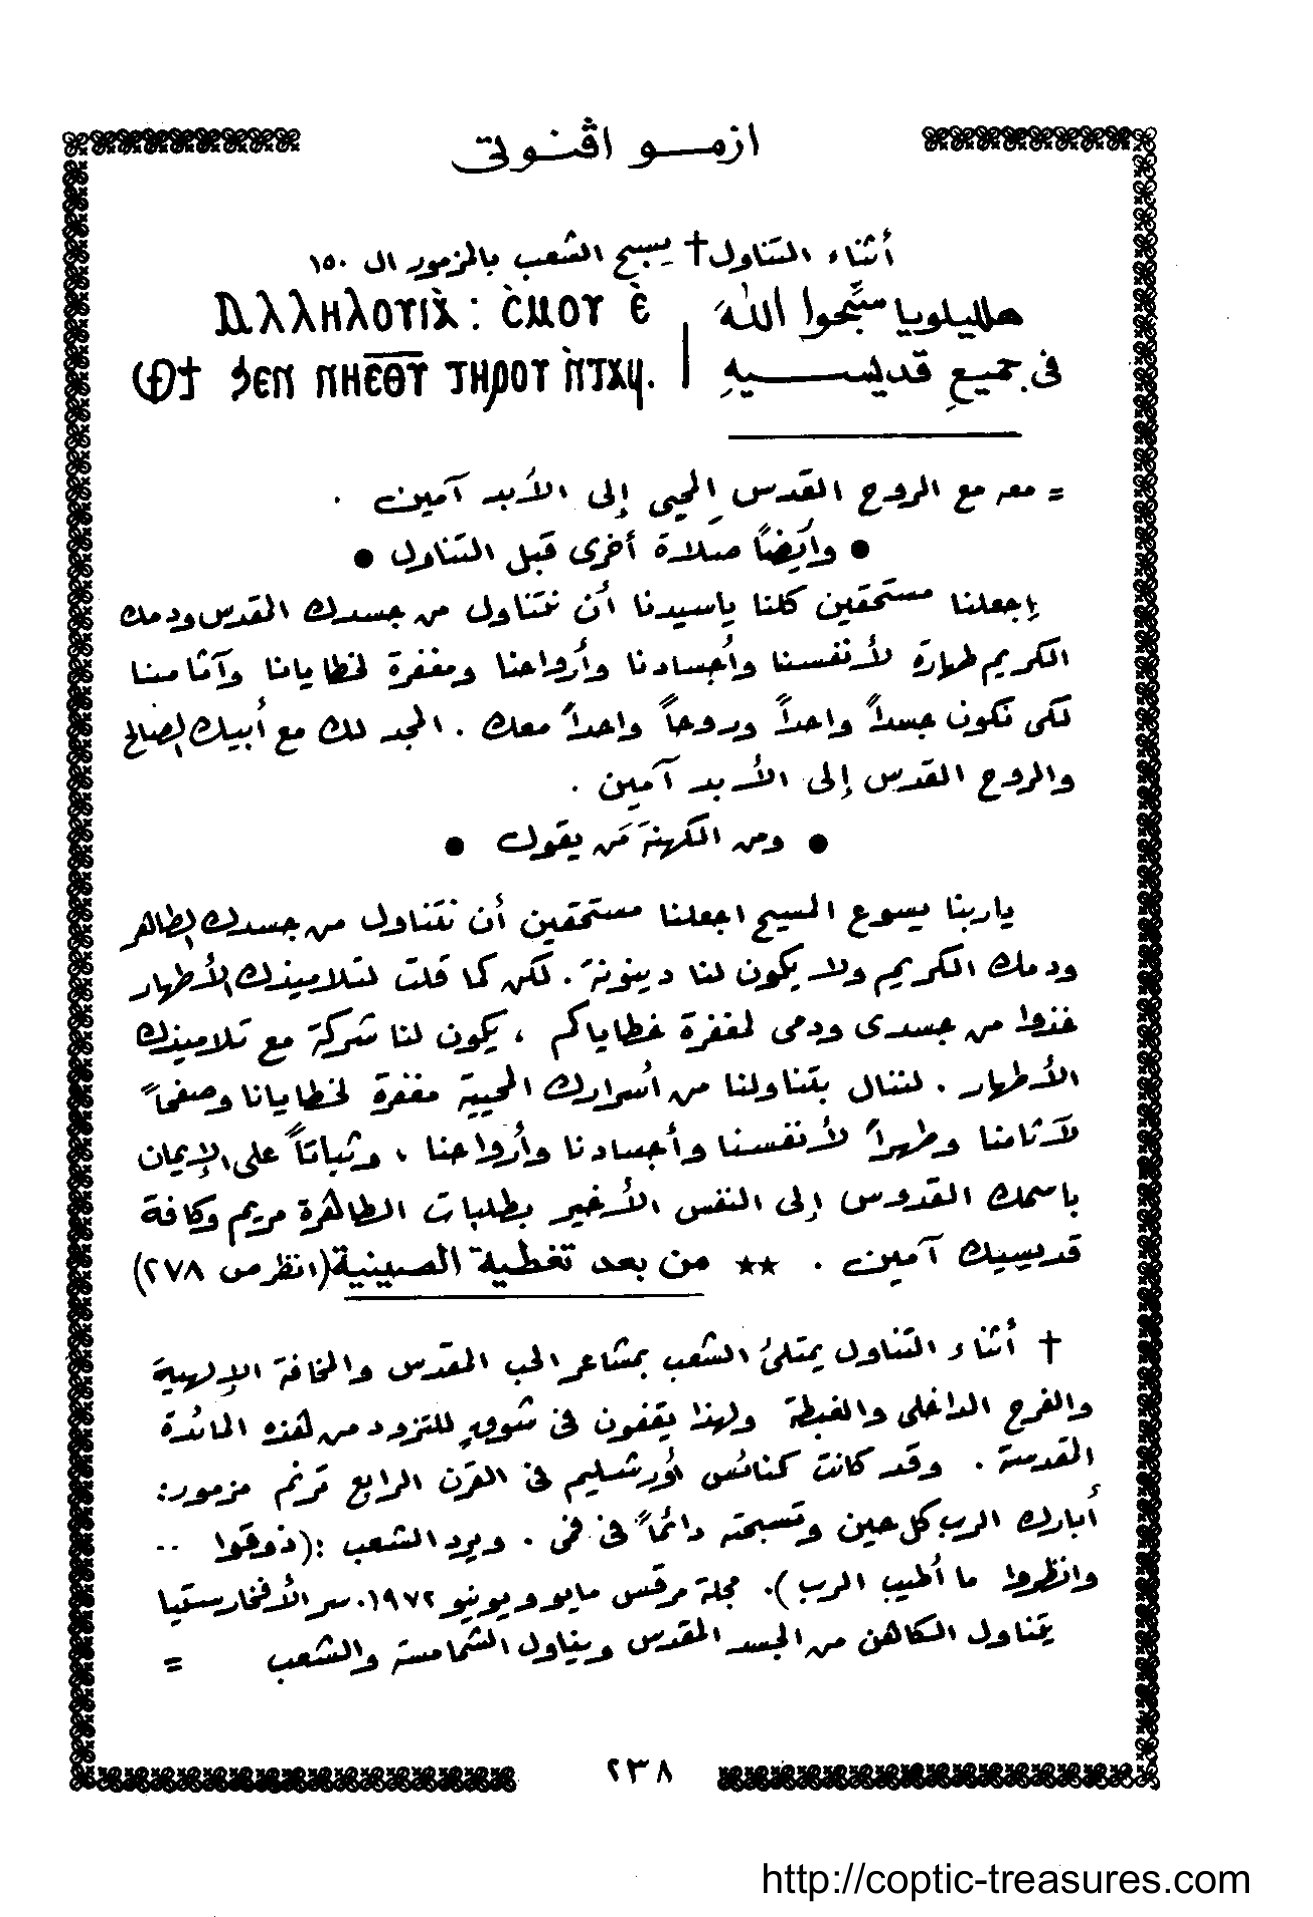 ازمــو اڤنــوتى
أثناء التناول † يسبح الشعب بالمزمور ال ١٥٠
هلليلويا سبِّحوا اللهَ
فى جميعِ قديســـيهِ
Ⲁⲗⲗⲏⲗⲟⲩⲓⲁ̀ : ⲥ̀ⲙⲟⲩ ⲉ̀
Ⲫϯ ϧⲉⲛ ⲛⲏⲉ̅ⲑ̅ⲩ̅ ⲧⲏⲣⲟⲩ ⲛ̀ⲧⲁϥ.
= معه مع الروح القدس المحيى إلى الأبد آمين .
● وأيضاً صلاة أخرى قبل التناول ●
إجعلنا مستحقين كلنا ياسيدنا أن نتناول من جسدك المقدس ودمك
الكريم طهارة لأنفسنا وأجسادنا وأرواحنا ومغفرة لخطايانا وآثامنا
لكى نكون جسداً واحداً وروحاً واحداً معك . المجد لك مع أبيك الصالح
والروح القدس إلى الأبد آمين .
● ومن الكهنة مَن يقول ●
ياربنا يسوع المسيح اجعلنا مستحقين أن نتناول من جسدك الطاهر
ودمك الكريم ولا يكون لنا دينونة . لكن كما قلت لتلاميذك الأطهار
خذوا من جسدى ودمى لمغفرة خطاياكم ، يكون لنا شركة مع تلاميذك
الأطهار . لننال بتناولنا من أسرارك المحيية مغفرة لخطايانا وصفحاً
لآثامنا وطهراً لأنفسنا وأجسادنا وأرواحنا ، وثباتاً على الإيمان
باسمك القدوس إلى النفس الأخير بطلبات الطاهرة مريم وكافة
قديسيك آمين . ★★ من بعد تغطية الصينية (انظر ص ٢٧٨)
† أثناء التناول يمتلئ الشعب بمشاعر الحب المقدس والمخافة الإلهية
والفرح الداخلى والغبطة ولهذا يقفون فى شوقٍ للتزود من هذه المائدة
المقدسة . وقد كانت كنائس أورشليم فى القرن الرابع ترنم مزمور:
أبارك الرب كل حين وتسبحته دائماً فى فمى . ويرد الشعب :(ذوقوا ..
وانظروا ما أطيب الرب ). مجلة مرقس مايو ويونيو ١٩٧٢. سر الأفخارستيا
يتناول الكاهن من الجسد المقدس ويناول الشمامسة والشعب =
٢٣٨
http://coptic-treasures.com